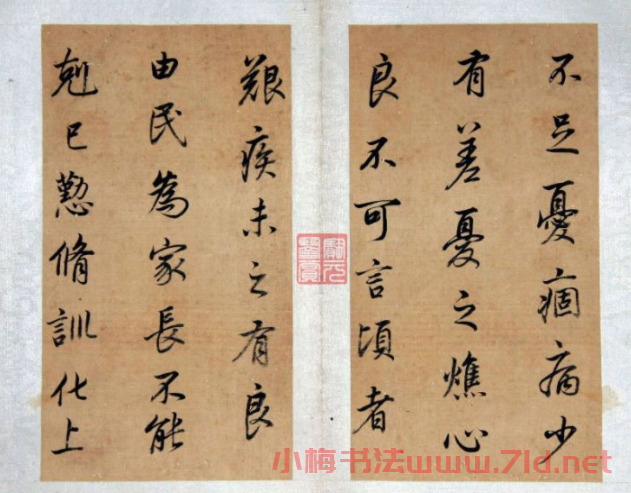 不足憂痼病少
有差憂之燋心
良不可言頃者
艱疾未之有良
由民為家長不能
剋己懃脩訓化上
小梅书法www.7ld.net